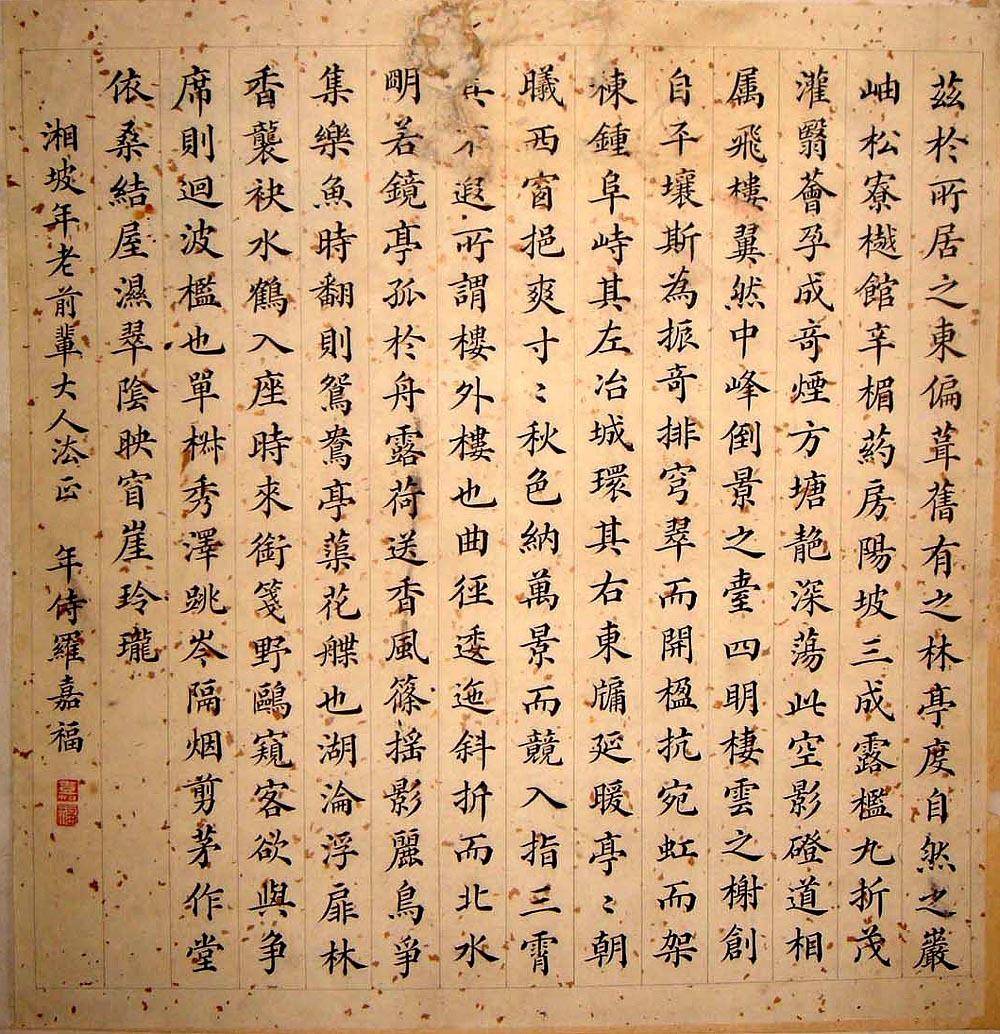 茲於所居之東偏葺舊有之林亭度自然之巖
岫松寮樾館辛楣葯房陽坡三成露檻九折茂
灌翳薈孕成奇煙方塘靘深蕩此空影磴道相
属飛樓翼然中峰倒景之臺四明棲雲之榭創
自平壤斯為振奇排穹翠而開楹抗宛虹而架
棟鍾阜峙其左冶城環其右東牖延暖亭〻朝
曦西窗挹爽寸〻秋色納萬景而競入指三霄
其不遐所謂樓外樓也曲徑逶迤斜折而北水
明若鏡亭孤於舟露荷送香風篠揺影麗鳥爭
集樂魚時翻則鴛鴦亭蕖花艓也湖淪浮扉林
香襲袂水鶴入座時來銜箋野鷗窺客欲與爭
席則迴波檻也單椒秀澤跳岑隔烟剪茅作堂
依桑結屋濕翠陰映窅崖玲瓏
湘坡年老前輩大人法正 年侍羅嘉福
嘉福